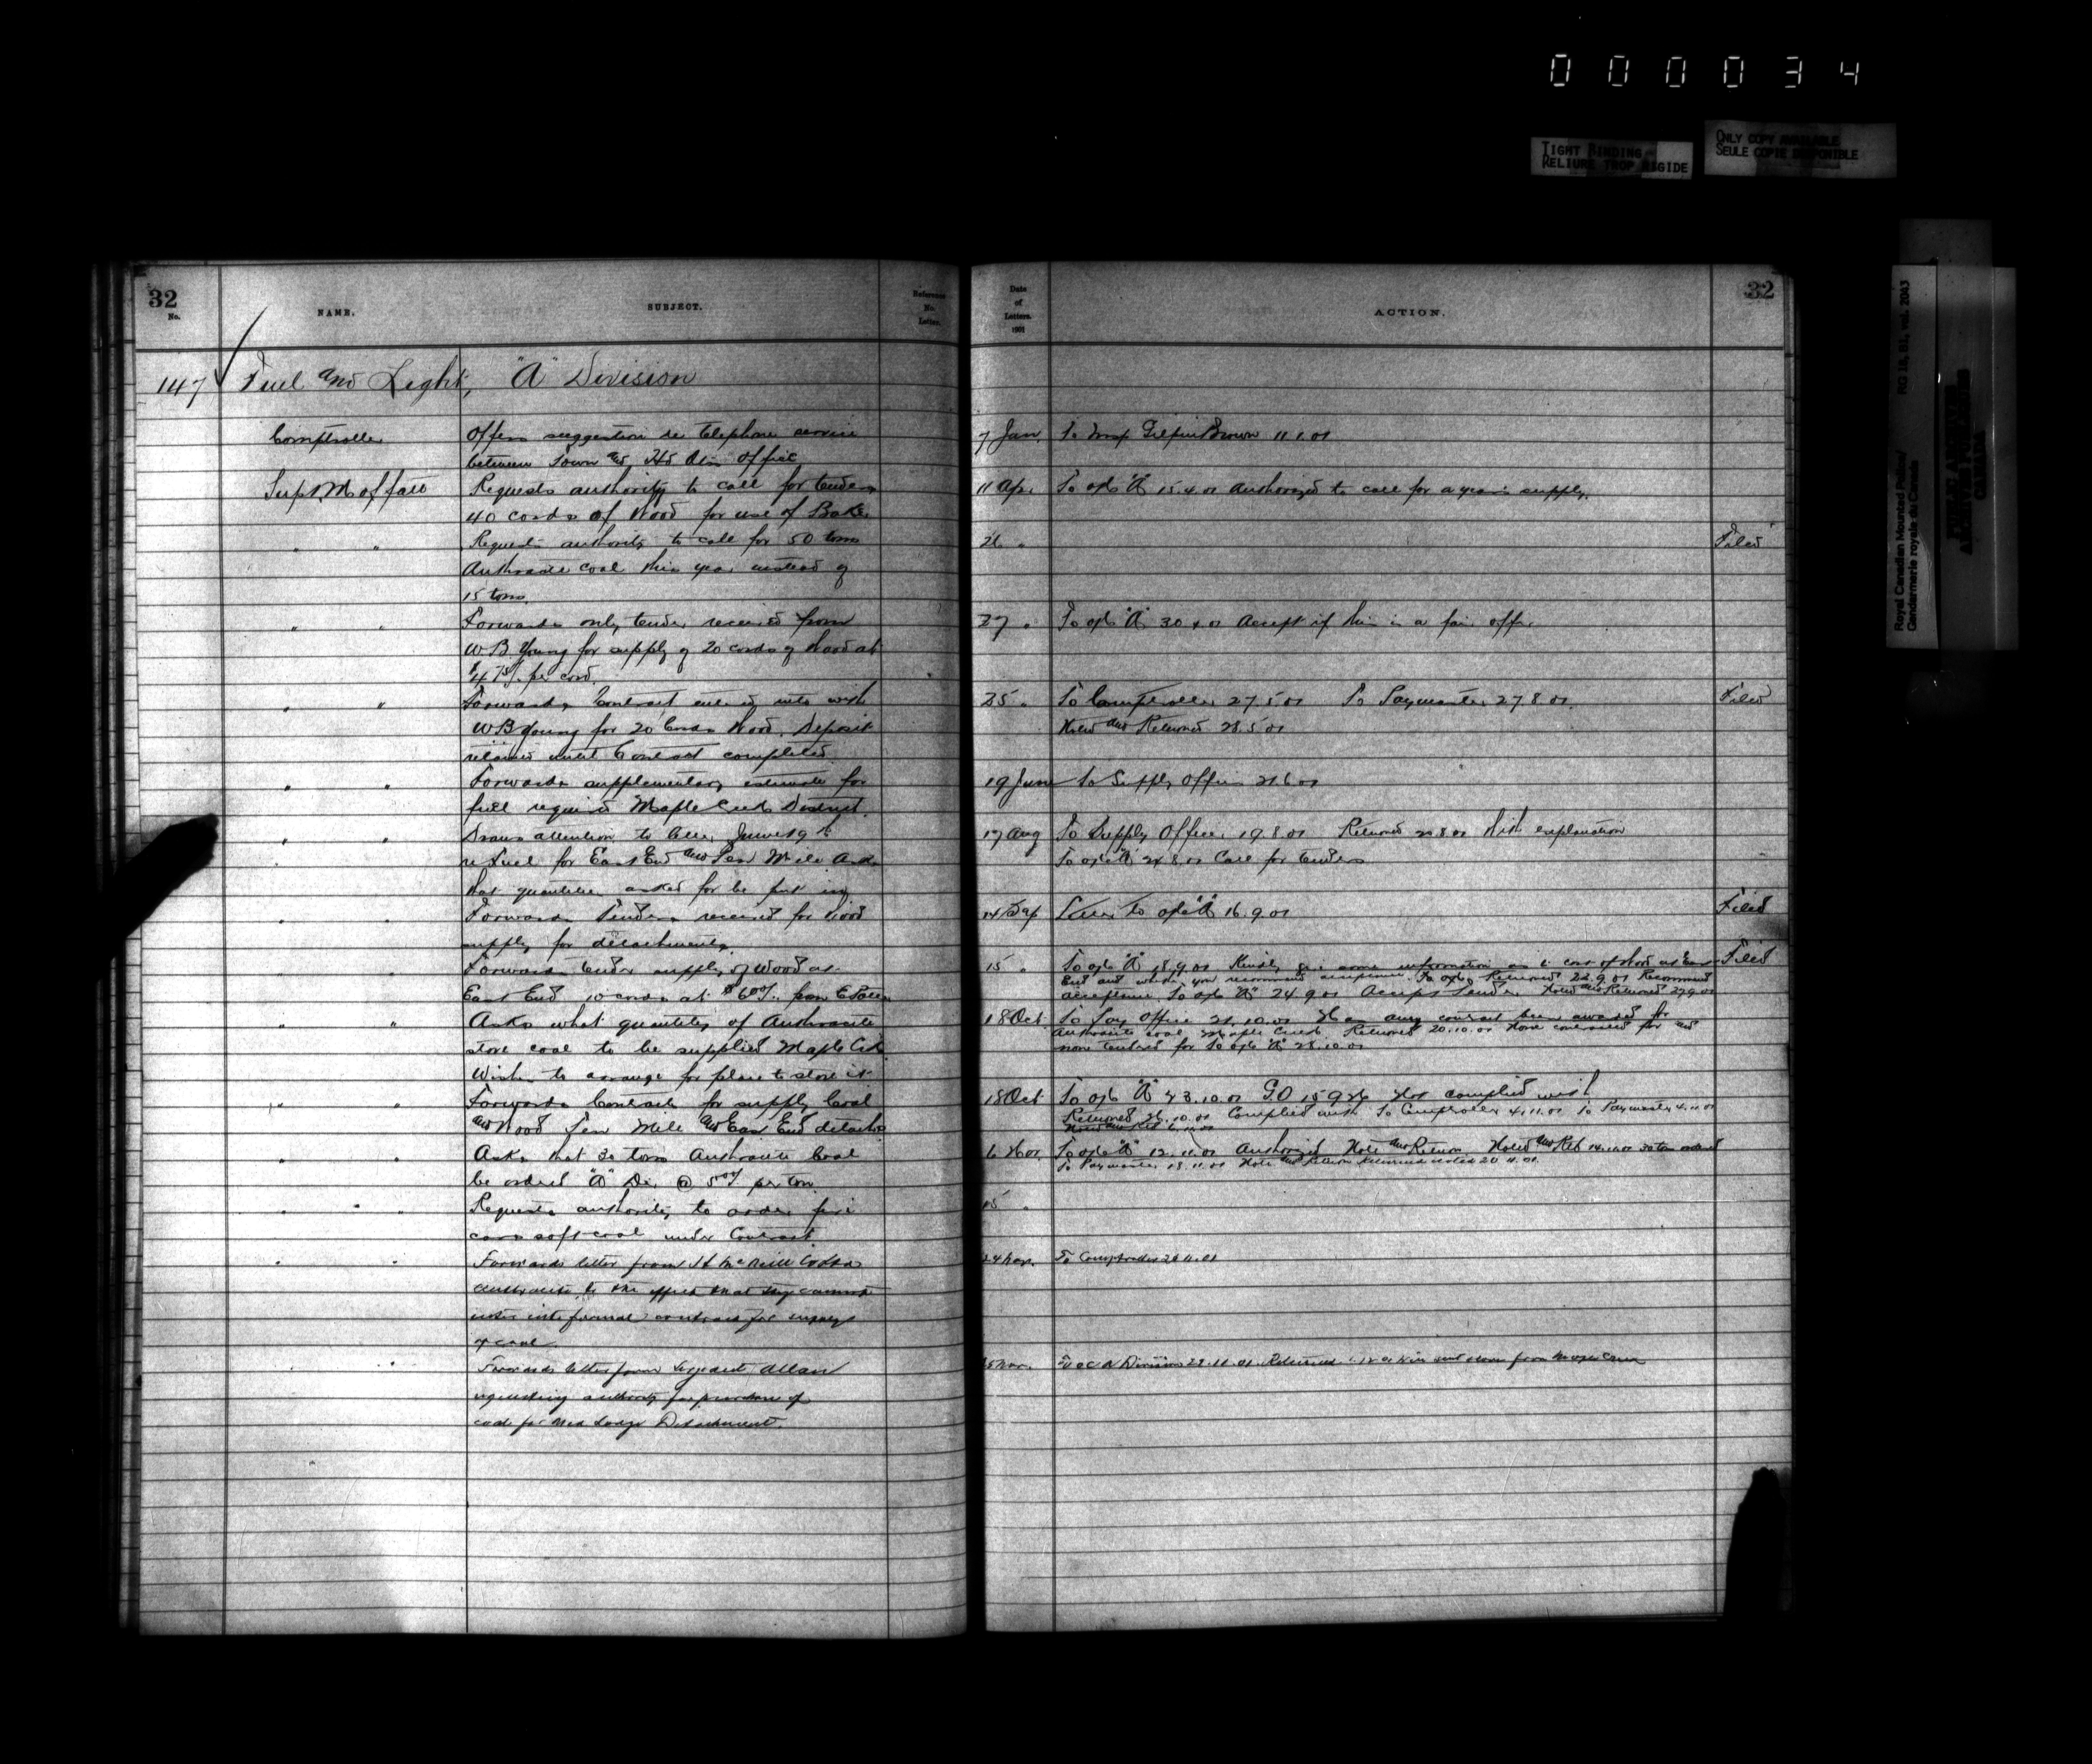 000034
TIGHT BINDING
RELIURE TROP RIGIDE
ONLY COPY AVAILABLE
SEULE COPIE DISPONIBLE
Royal Canadian Mounted Police/ RG 18, B1, vol. 2043
Gendarmerie royale du Canada
PUBLIC ARCHIVES
ARCHIVES PUBLIQUES
CANADA
32
No. NAME. SUBJECT. Reference No. Letter.
147 Fuel and Light, "A" Division
Comptroller Offers suggestion re telephone service
between Town and Hd Qrs Office
Supt. Moffatt Requests authority to call for tenders
40 cords of Wood for use of
" " Requests authority to call for 50 tons
Anthracite coal this year instead of
15 tons.
" " Forwards only tender received from
W B Young for supply of 20 cords of Wood at
$4 75/ per cord.
" " Forwards Contract entered into with
W B Young for 20 Cords Wood. Deposit
retained until Contract completed
" " Forwards supplementary estimate for
fuel required Maple Creek District.
" " Draws attention to letter June 19th
re Fuel for East End and Ten Mile Asks
that quantities asked for be put in
" " Forwards Tenders received for Wood
supply for detachments.
" " Forwards tender supply of Wood at
East End 10 cords at $6 00/. from
" " Asks what quantity of Anthracite
stove coal to be supplied Maple Crk
Wishes to arrange for place to store it
" " Forwards Contracts for supply Coal
and Wood Ten Mile and East End detachts
" " Asks that 30 tons Anthracite Coal
be ordered "A" Div @ 5 per ton
" " Requests authority to order five
cars soft coal under Contract.
" " Forwards letter from H McNeill
Anthracite, to the effect that they cannot
enter into formal contract for supply
of coal
" " Forwards letter from Sergeant Allan
requesting authority for purchase of
coal for Med Lodge Detachment.
32
Date of Letters. 1901 ACTION.
7 Jan. To Insp Gilpin Brown 11.1.01
11 Ap. To ofc "A" 15.4.01 Authorized to call for a years supply.
26 " Filed
27 " To ofc "A" 30.4.01 Accept if this is a fair offer
25 " To Comptroller 27.5.01 To Paymaster 27.8.01. Filed
Noted and Returned 28.5.01
19 June To Supply Officer 21.6.01
17 Aug To Supply Officer 19.8.01 Returned 20.8.01 With explanation
To ofc "A" 24.8.01 Call for tenders
14 Sep to ofc "A" 16.9.01 Filed
15 " To ofc "A" 18.9.01 Kindly give some information as to cost of Wood at East Filed
End and whether you recommend acceptance. Returned 22.9.01 Recommend
acceptance To ofc "A" 24.9.01 Accept tender Noted and Returned 27.9.01
18 Oct. To Pay Office 21.10.01 Has any contract been awarded for
Anthracite coal Maple Creek Returned 20.10.01 None contracted for and
none tendered for To ofc "A" 28.10.01
18 Oct To ofc "A" 23.10.01 G.O 15926 Not complied with
Returned 26.10.01 Complied with To Comptroller 4.11.01 To Paymaster 4.11.01
Noted and Ret
6 Nov To ofc "A" 12.11.01 Authorized Note and Return Noted and Ret 14.11.01 30 tons ordered
To Paymaster 18.11.01 Note and Return Returned noted 20.11.01
15 "
24 Nov. To Comptroller 26.11.01
25 Nov. To O C A Division 29.11.01. Returned